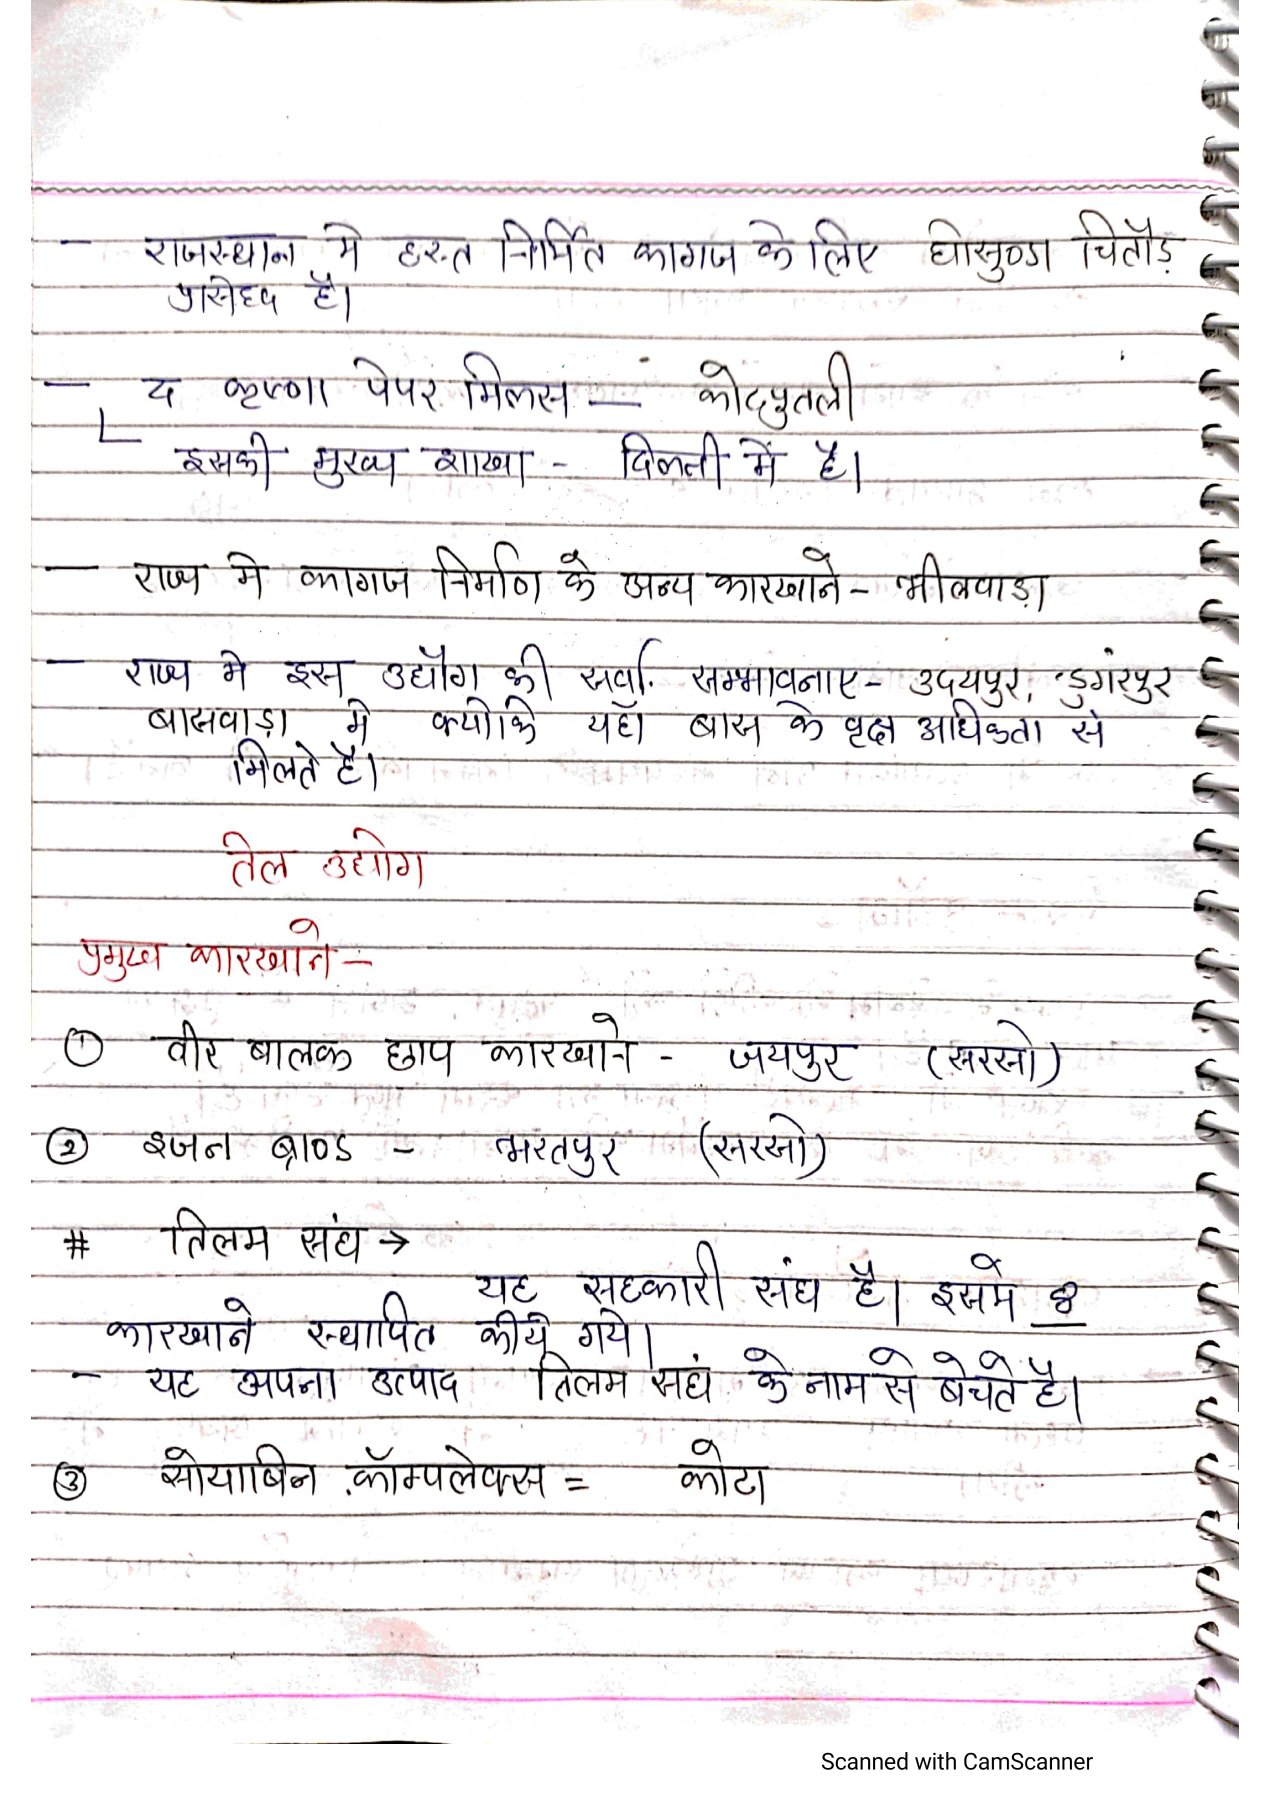 - राजस्थान मे हस्त निर्मित कागज के लिए घोसुण्डा चितौड़
प्रसिध्द है।
- द कृष्णा पेपर मिलस - कोटपुतली
इसकी मुख्य शाखा - दिल्ली में है।
- राज्य मे कागज निर्माण के अन्य कारखाने - भीलवाड़ा
- राज्य मे इस उद्यौग की सर्वा. सम्भावनाए - उदयपुर, डुगंरपुर
बासवाड़ा मे क्योकि यहाँ बास के वृक्ष अधिकता से
मिलते है।
तेल उद्योग
प्रमुख कारखाने -
① वीर बालक छाप कारखाने - जयपुर (सरसो)
② इजन ब्राण्ड - भरतपुर (सरसो)
# तिलम संघ →
यह सहकारी संघ है। इसमे 8
कारखाने स्थापित कीये गये।
- यह अपना उत्पाद तिलम सघं के नाम से बेचते है।
③ सोयाबिन कॉम्पलेक्स = कोटा
Scanned with CamScanner